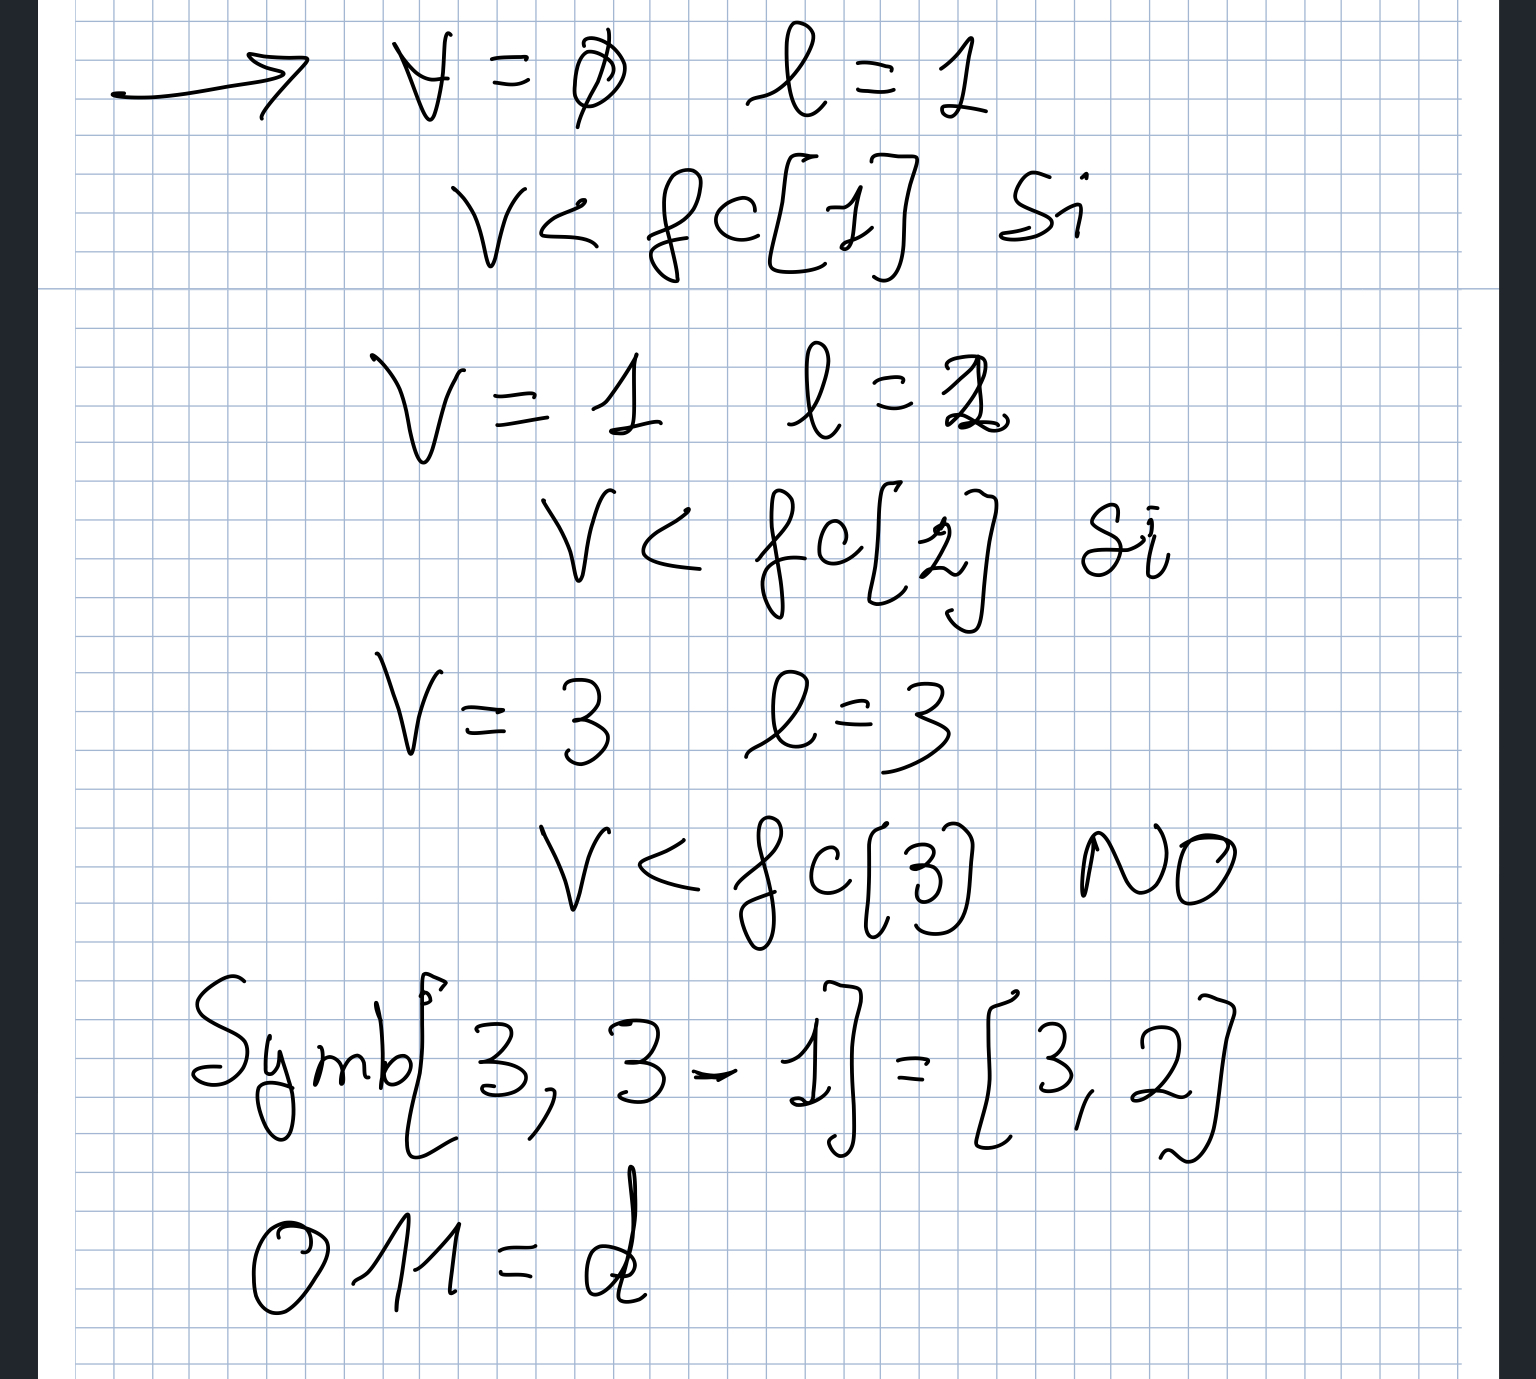 → V = ∅ l = 1
V < fc[1] Si
V = 1 l = 2
V < fc[2] Si
V = 3 l = 3
V < fc[3] NO
Symb[3, 3 - 1] = [3, 2]
011 = d